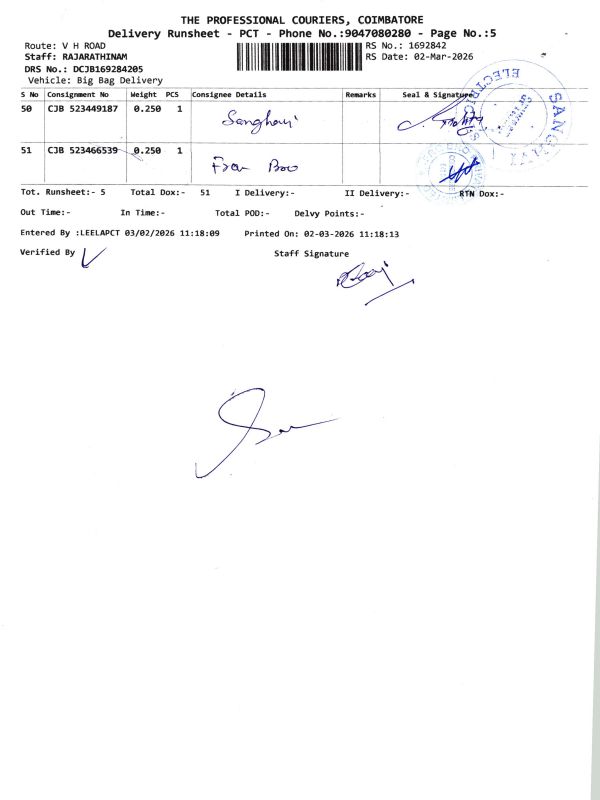 THE PROFESSIONAL COURIERS, COIMBATORE
Delivery Runsheet - PCT - Phone No.:9047080280 - Page No.:5
Route: V H ROAD
RS No.: 1692842
Staff: RAJARATHINAM
RS Date: 02-Mar-2026
DRS No.: DCJB169284205
Vehicle: Big Bag Delivery
S No Consignment No Weight PCS Consignee Details Remarks Seal & Signature
50 CJB 523449187 0.250 1 Sanghavi
51 CJB 523466539 0.250 1
Tot. Runsheet:- 5 Total Dox:- 51 I Delivery:- II Delivery:- RTN Dox:-
Out Time:- In Time:- Total POD:- Delvy Points:-
Entered By :LEELAPCT 03/02/2026 11:18:09 Printed On: 02-03-2026 11:18:13
Verified By Staff Signature